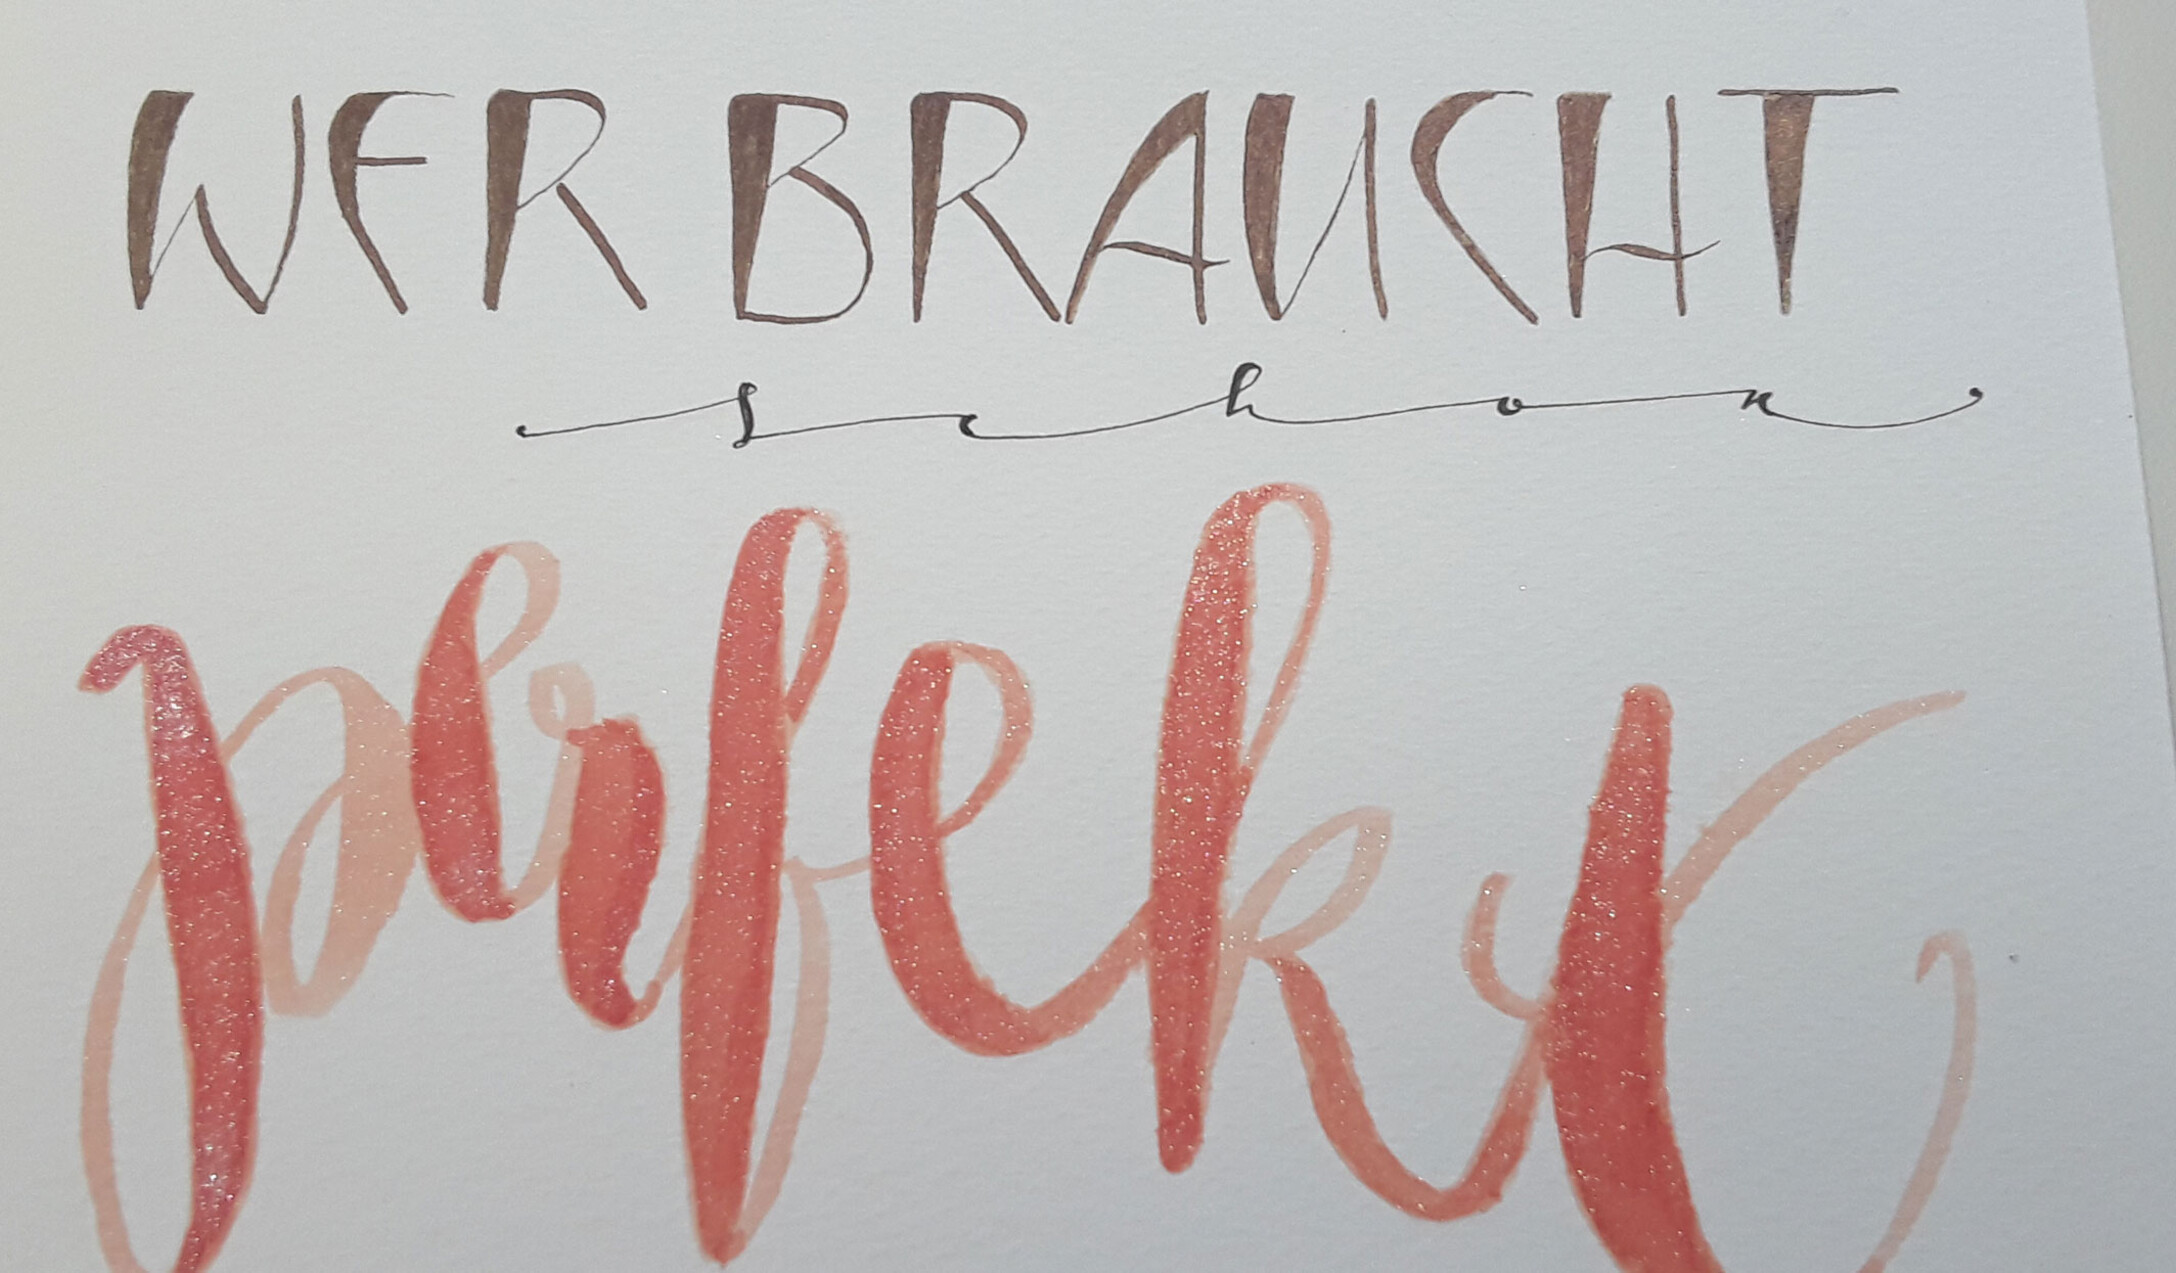 WER BRAUCHT
schon
perfekt